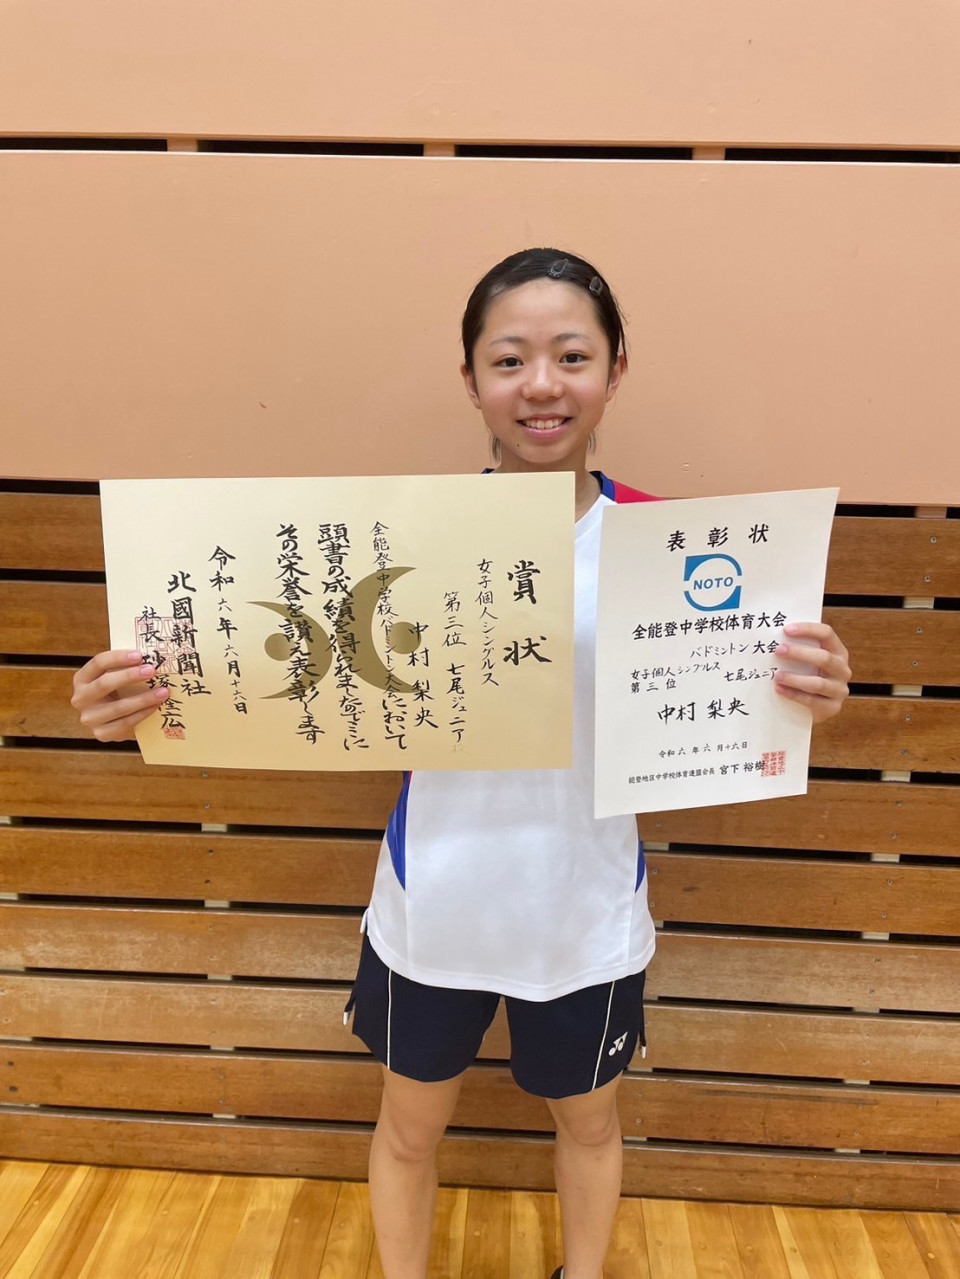 賞状
女子個人シングルス
第三位 七尾ジュニア
中村梨央
全能登中学校バドミントン大会において
頭書の成績を得られましたのでここに
その栄誉を讃え表彰します
令和六年六月十六日
北國新聞社
社長 砂塚隆広
表彰状
NOTO
全能登中学校体育大会
バドミントン大会
女子個人シングルス
第三位 七尾ジュニア
中村梨央
令和六年六月十六日
能登地区中学校体育連盟会長 宮下裕樹